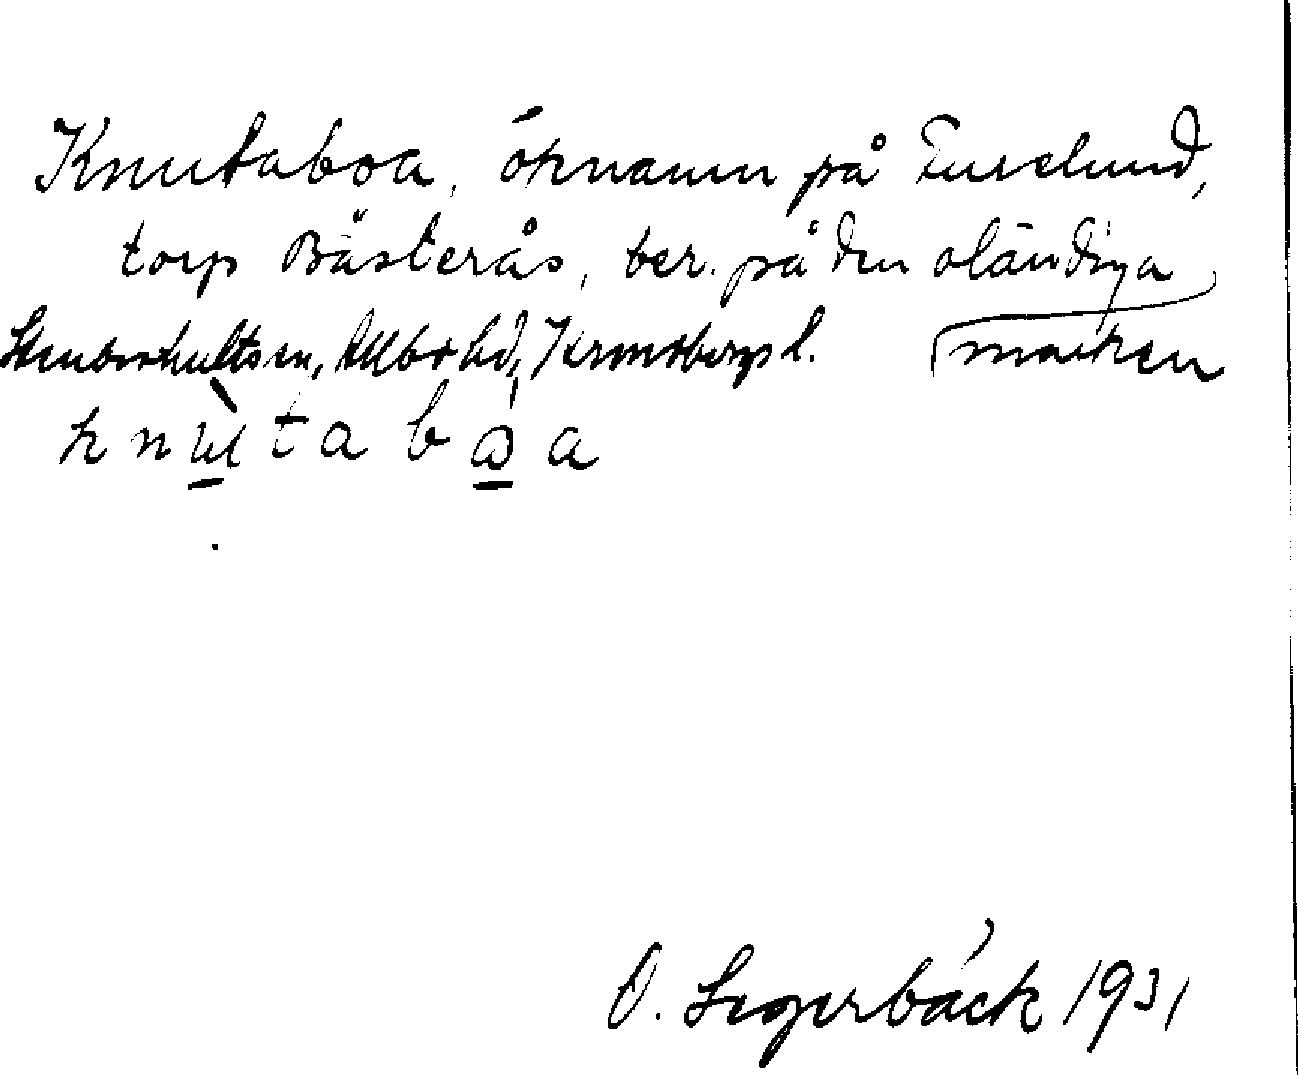 Knutaboa, öknamn på Furelund,
torp Bästerås, ber. på den oländiga
marken
Stenbrohultsn, Allbo hd, Kronobergs l.
knùtabòa
O. Segerbäck 1931